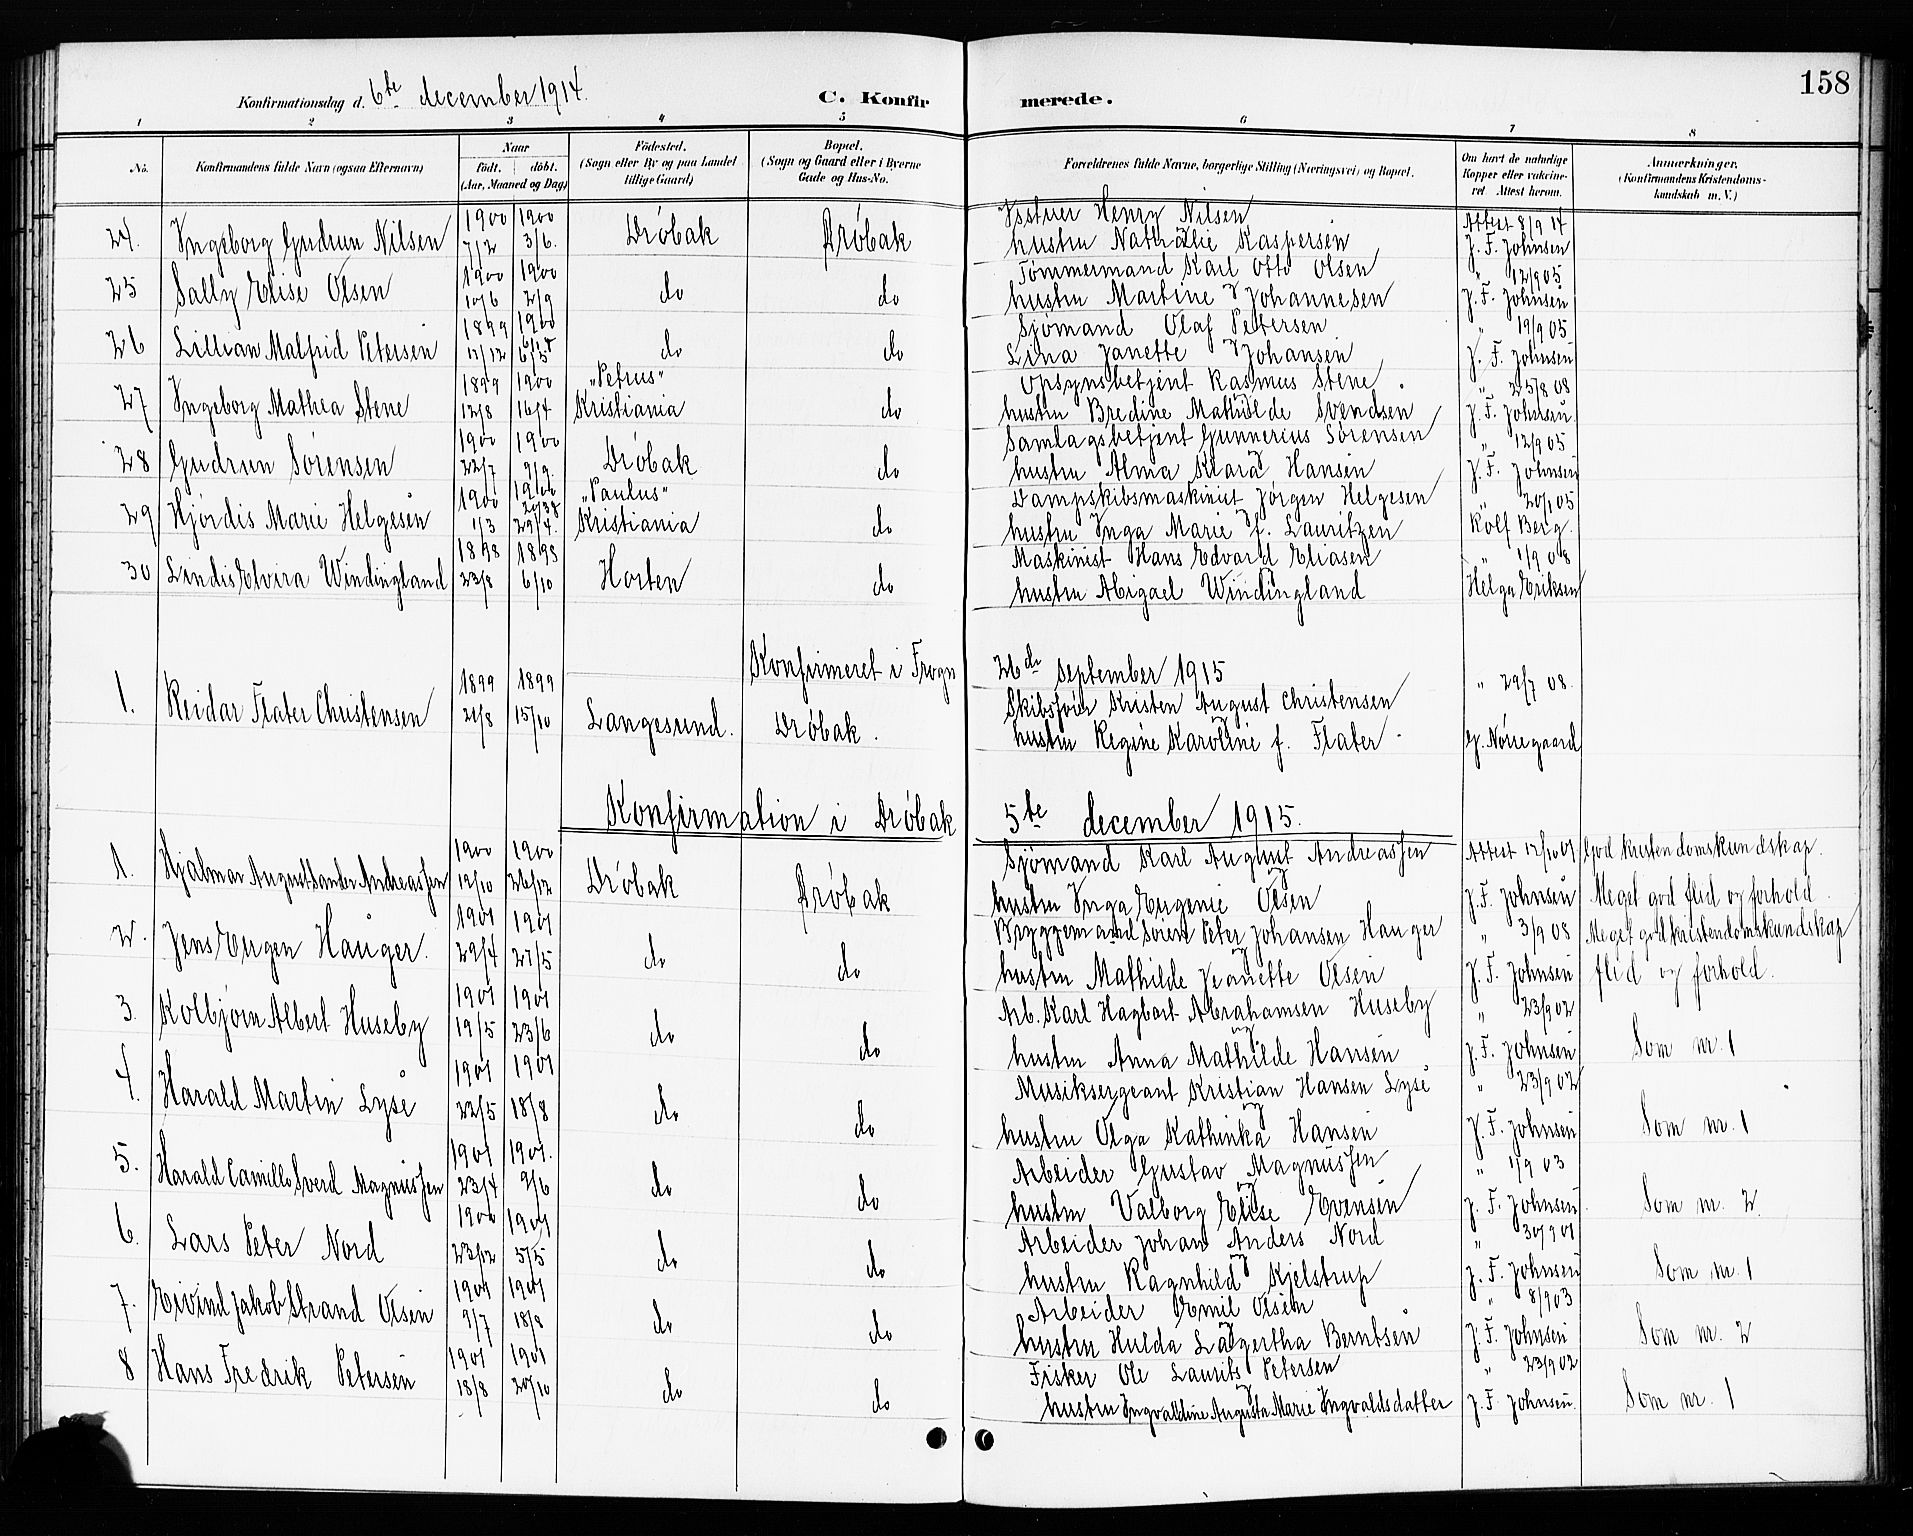 158
Konfirmationsdag d. 6te december 1914. C. Konfirmerede.
1 2 3 4 5 6 7 8
No. Konfirmandens fulde Navn (ogsaa Efternavn) Naar födt. döbt. (Aar, Maaned og Dag) Födested. (Sogn eller By og paa Landet tillige Gaard) Bopæl. (Sogn og Gaard eller i Byerne Gade og Hus-No. Forældrenes fulde Navne, borgerlige Stilling (Næringsvei) og Bopæl. Om havt de naturlige Kopper eller vaccineret Attest herom. Anmærkninger. (Konfirmandens Kristendomskundskab m. V.)
24. Ingeborg Gudrun Nilsen 1900 7/2 1900 3/6. Drøbak Drøbak Henry Nilsen Attest 8/9 14
hustru Nathalie Kaspersen J. F. Johnsen
25 Sally Elise Olsen 1900 10/6 1900 2/9 do do Tømmermand Karl Otto Olsen " 12/9 05
hustru Martine Johannesen J. F. Johnsen
26 Lillian Malfrid Petersen 1899 1900 6/5 do do Sjømand Olaf Petersen " 19/9 05
Lina Janette Johansen J. F. Johnsen
27 Ingeborg Mathea Stene 1899 12/8 1900 16/4 "Petrus" Kristiania do Opsynsbetjent Rasmus Stene " 25/8 08
hustru Bredine Mathilde Svendsen J. F. Johnsen
28 Gudrun Sørensen 1900 22/7 1900 9/9. Drøbak do Samlagsbetjent Gunnerius Sørensen " 12/9 05
hustru Alma Klara Hansen J. F. Johnsen
29 Hjørdis Marie Helgesen 1900 1/3 1900 29/4. "Paulus" Kristiania do Dampskibsmaskinist Jørgen Helgesen " 20/1 05
hustru Inga Marie f. Lauritzen Rolf Berg.
30 Lindis Elvira Windingland 1898 23/8 1898 6/10 Horten do Maskinist Hans Edvard Eliasen " 1/9 08
hustru Abigael Windingland Helga Eriksen
Konfirmeret i Frogn 26de september 1915
1. Reidar Flater Christensen 1899 21/8 1899 15/10 Langesund. Drøbak. Skibsfører Kristen August Christensen " 29/7 08.
hustru Regine Karoline f. Flater Nørregaard
Konfirmation i Drøbak 5te december 1915.
1. Hjalmar August Andreassen 1900 19/10 1900 26/12 Drøbak Drøbak Sjømand Karl August Andreassen Attest 12/10 01 God kristendomskundskap.
hustru Inga Eugenie Olsen J. F. Johnsen Meget god flid og forhold.
2. Jens Eugen Hauger. 1901 29/4 1901 27/5 do do Bryggemand Søren Peter Johansen Hauger " 3/9 08 Meget god kristendomskundskap
hustru Mathilde Jeanette Olsen J. F. Johnsen flid og forhold.
3. Kolbjørn Albert Huseby 1901 19/5 1901 23/6 do do Arb. Karl Hagbart Abrahamsen Huseby " 23/9 02
hustru Anna Mathilde Hansen J. F. Johnsen Som nr. 1
4. Harald Martin Lyse 1901 22/5 1901 18/8 do do Musiksergeant Kristian Hansen Lyse " 23/9 02
hustru Olga Kathinka Hansen J. F. Johnsen Som nr. 1
5. Harald Camillo Sverd Magnussen 1901 23/4 1901. 9/6 do do Arbeider Gustav Magnussen " 1/9 03
hustru Valborg Elise Evensen J. F. Johnsen Som nr. 2
6. Lars Peter Nord 1900 23/12 1901 5/5 do do Arbeider Johan Anders Nord " 30/9 01
hustru Ragnhild Kjelstrup J. F. Johnsen Som nr. 1
7. Eivind Jakob Strand Olsen 1901 9/7 1901 18/8 do do Arbeider Emil Olsen " 8/9 03
hustru Hulda Lagertha Berntsen J. F. Johnsen Som nr. 2
8 Hans Fredrik Petersen 1901 18/8 1901 20/10 do do Fisker Ole Laurits Petersen " 23/9 02
hustru Ingvaldine Augusta Marie Ingvaldsdatter J. F. Johnsen. Som nr. 1